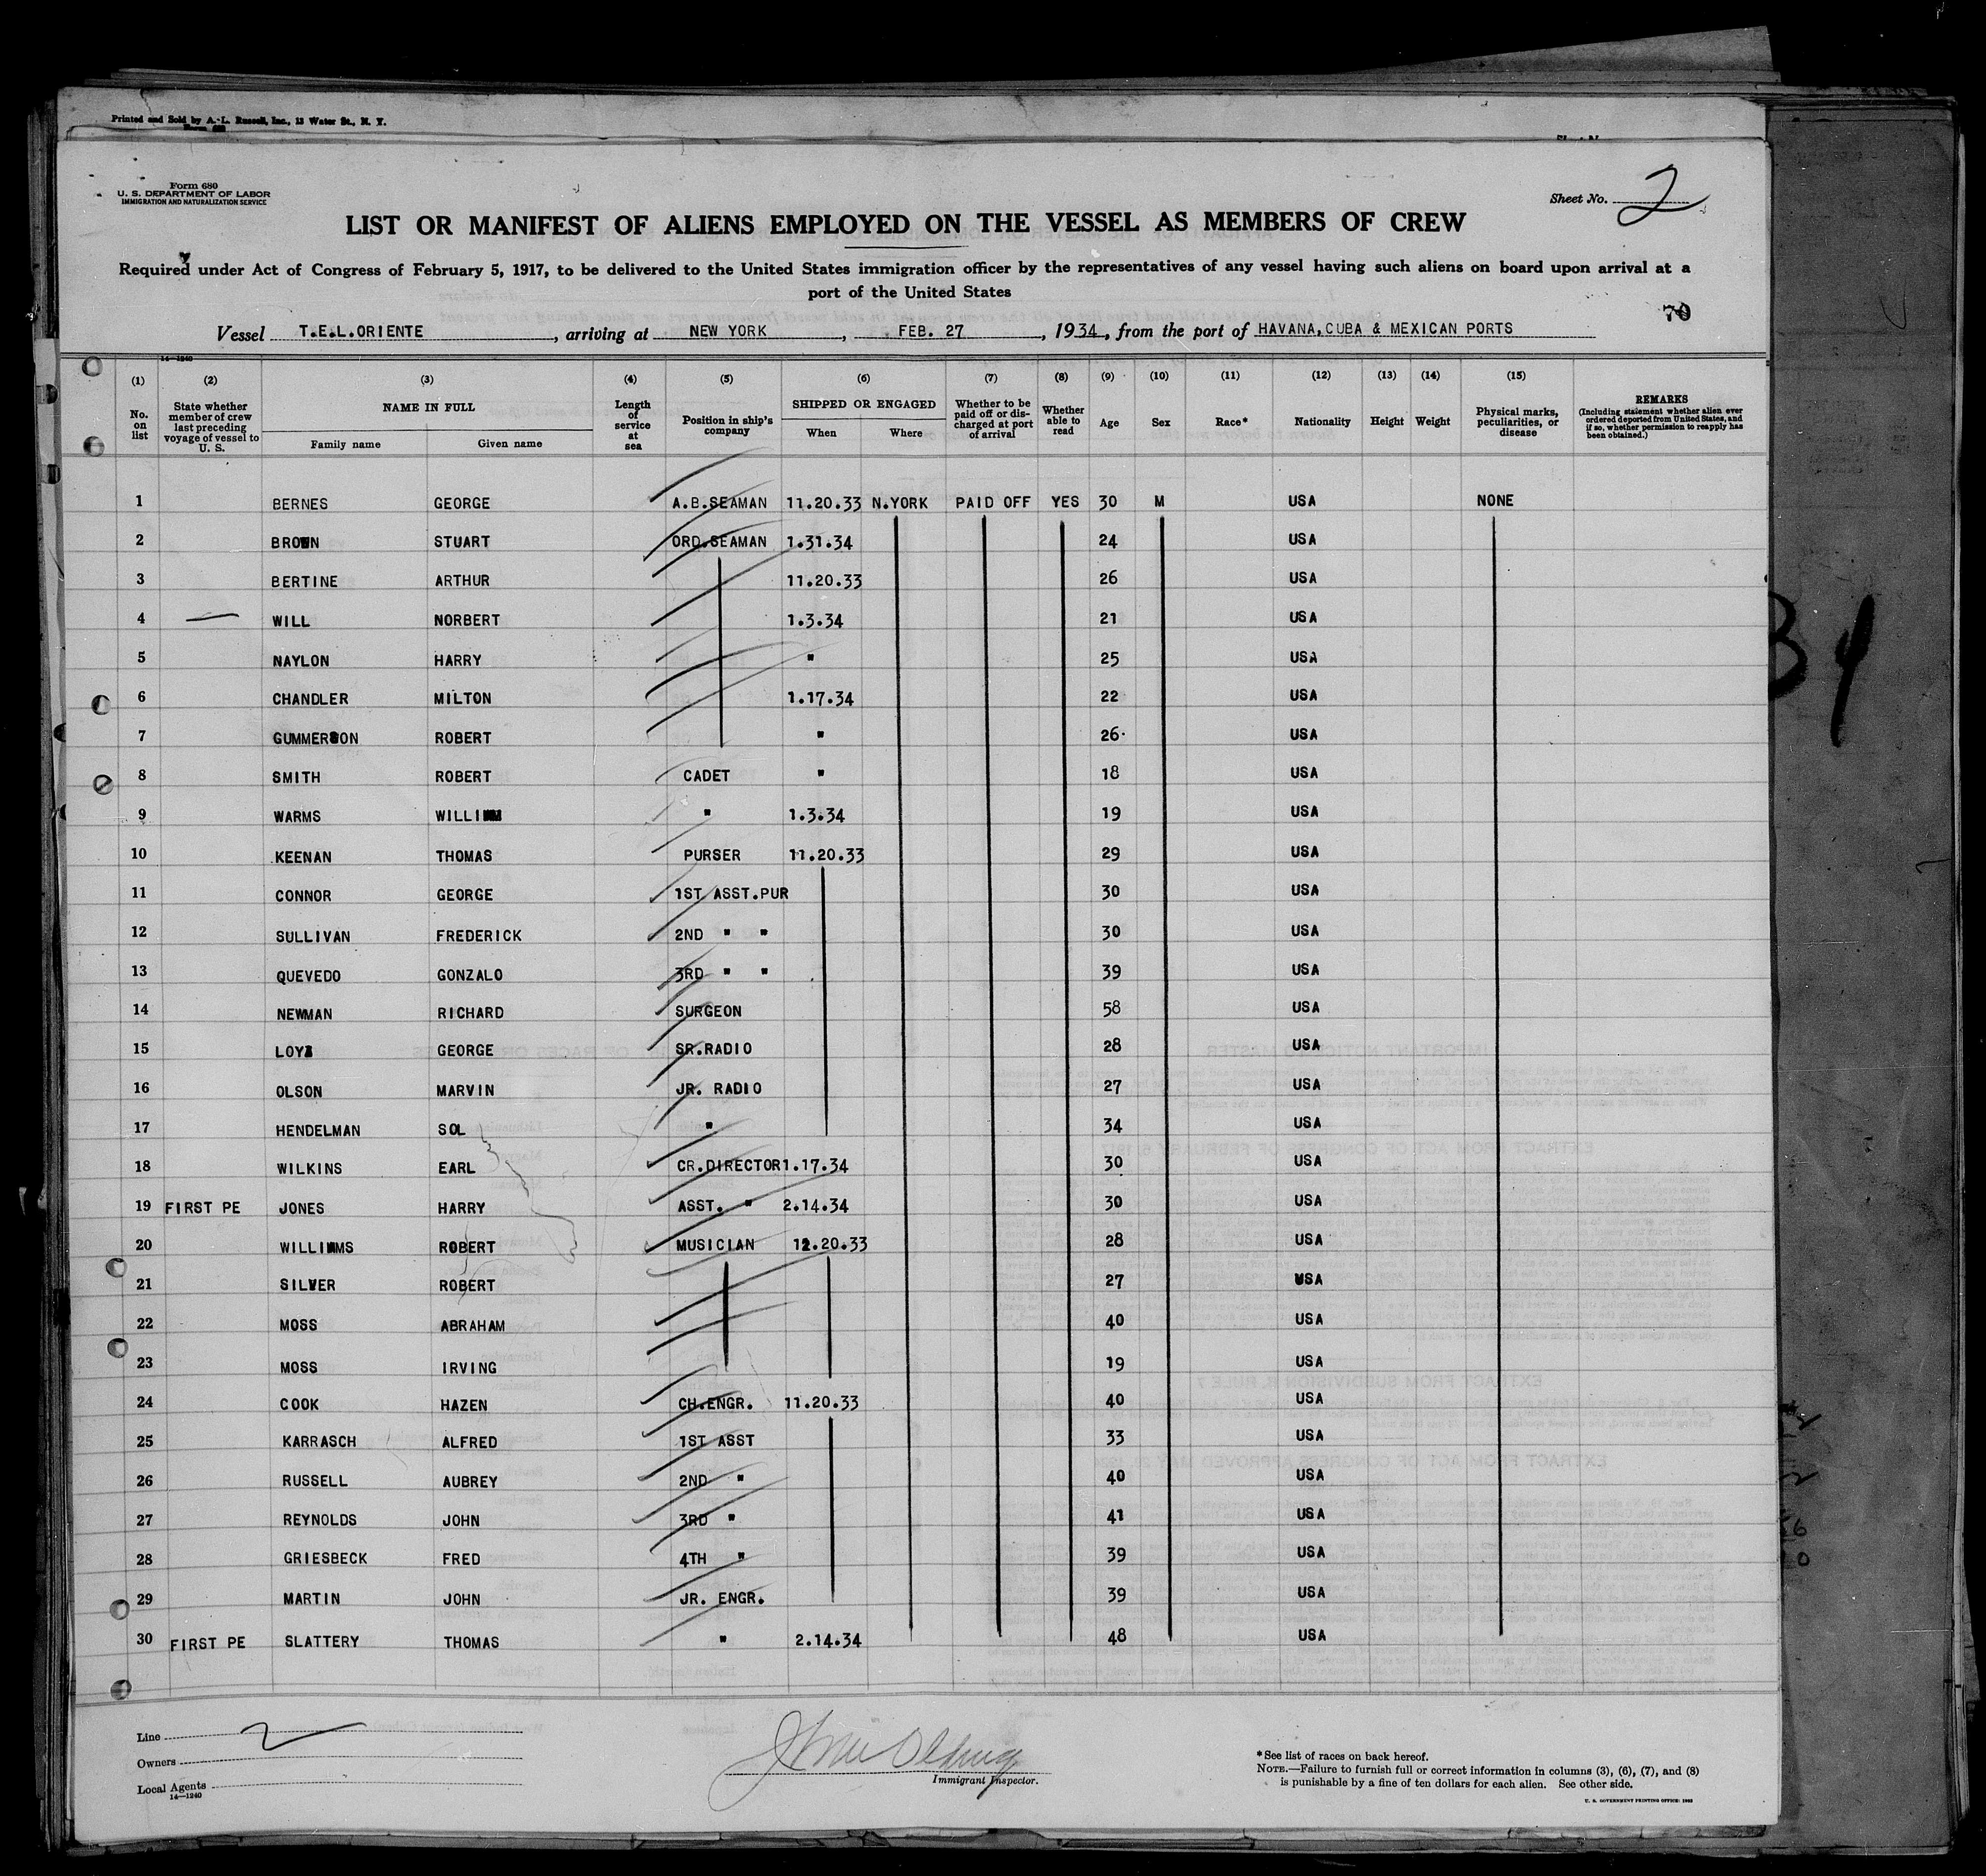 Printed and Sold by A. L. Russell, Inc., 13 Water St., N. Y.
Form 680
U. S. DEPARTMENT OF LABOR
IMMIGRATION AND NATURALIZATION SERVICE
Sheet No. 2
LIST OR MANIFEST OF ALIENS EMPLOYED ON THE VESSEL AS MEMBERS OF CREW
Required under Act of Congress of February 5, 1917, to be delivered to the United States immigration officer by the representatives of any vessel having such aliens on board upon arrival at a
port of the United States
70
Vessel T.E.L.ORIENTE, arriving at NEW YORK, FEB. 27, 1934, from the port of HAVANA,CUBA & MEXICAN PORTS
14—1240
(1) (2) (3) (4) (5) (6) (7) (8) (9) (10) (11) (12) (13) (14) (15)
No. on list
State whether member of crew last preceding voyage of vessel to U. S.
NAME IN FULL
Family name Given name
Length of service at sea
Position in ship's company
SHIPPED OR ENGAGED
When Where
Whether to be paid off or discharged at port of arrival
Whether able to read
Age Sex Race* Nationality Height Weight
Physical marks, peculiarities, or disease
REMARKS
(Including statement whether alien ever ordered deported from United States, and if so, whether permission to reapply has been obtained.)
1 BERNES GEORGE A.B.SEAMAN 11.20.33 N.YORK PAID OFF YES 30 M USA NONE
2 BROWN STUART ORD.SEAMAN 1.31.34 24 USA
3 BERTINE ARTHUR 11.20.33 26 USA
4 — WILL NORBERT 1.3.34 21 USA
5 NAYLON HARRY " 25 USA
6 CHANDLER MILTON 1.17.34 22 USA
7 GUMMERSON ROBERT " 26 USA
8 SMITH ROBERT CADET " 18 USA
9 WARMS " 1.3.34 19 USA
10 KEENAN THOMAS PURSER 11.20.33 29 USA
11 CONNOR GEORGE 1ST ASST.PUR 30 USA
12 SULLIVAN FREDERICK 2ND " " 30 USA
13 QUEVEDO GONZALO 3RD " " 39 USA
14 NEWMAN RICHARD SURGEON 58 USA
15 GEORGE SR.RADIO 28 USA
16 OLSON MARVIN JR. RADIO 27 USA
17 HENDELMAN SOL " 34 USA
18 WILKINS EARL CR.DIRECTOR 1.17.34 30 USA
19 FIRST PE JONES HARRY ASST. " 2.14.34 30 USA
20 ROBERT MUSICIAN 12.20.33 28 USA
21 SILVER ROBERT 27 USA
22 MOSS ABRAHAM 40 USA
23 MOSS IRVING 19 USA
24 COOK HAZEN CH.ENGR. 11.20.33 40 USA
25 KARRASCH ALFRED 1ST ASST 33 USA
26 RUSSELL AUBREY 2ND " 40 USA
27 REYNOLDS JOHN 3RD " 41 USA
28 GRIESBECK FRED 4TH " 39 USA
29 MARTIN JOHN JR. ENGR. 39 USA
30 FIRST PE SLATTERY THOMAS " 2.14.34 48 USA
Line
Owners
Local Agents
14—1240
Immigrant Inspector.
*See list of races on back hereof.
NOTE.—Failure to furnish full or correct information in columns (3), (6), (7), and (8)
is punishable by a fine of ten dollars for each alien. See other side.
U. S. GOVERNMENT PRINTING OFFICE:
34